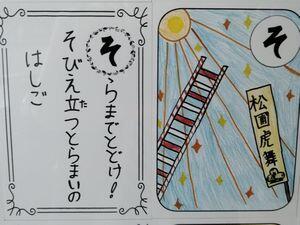 そらまでとどけ!
そびえ立つとらまいの
はしご
そ
松圃虎舞